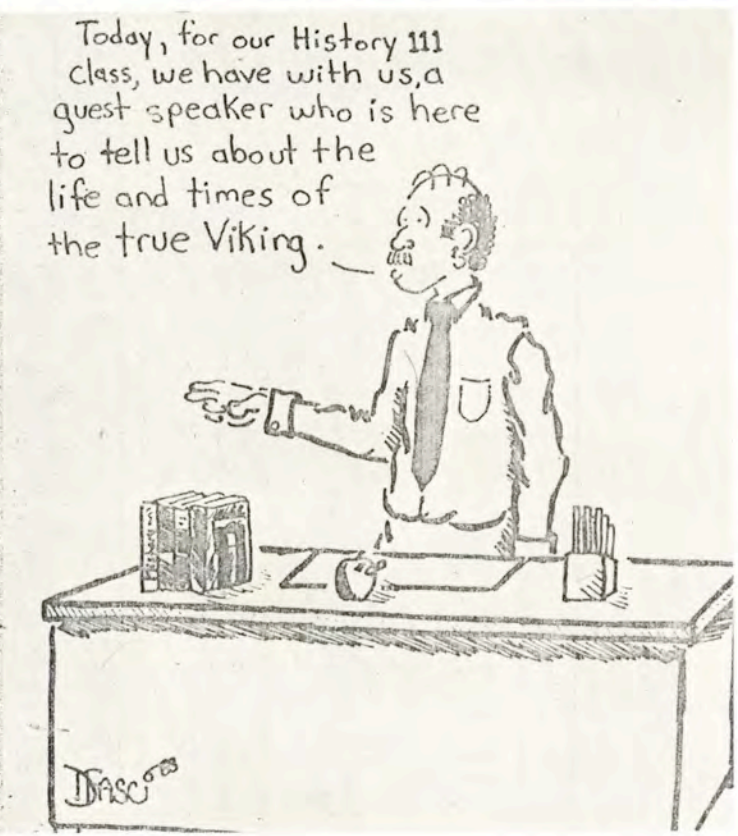 Today, for our History 111
class, we have with us, a
guest speaker who is here
to tell us about the
life and times of
the true Viking.